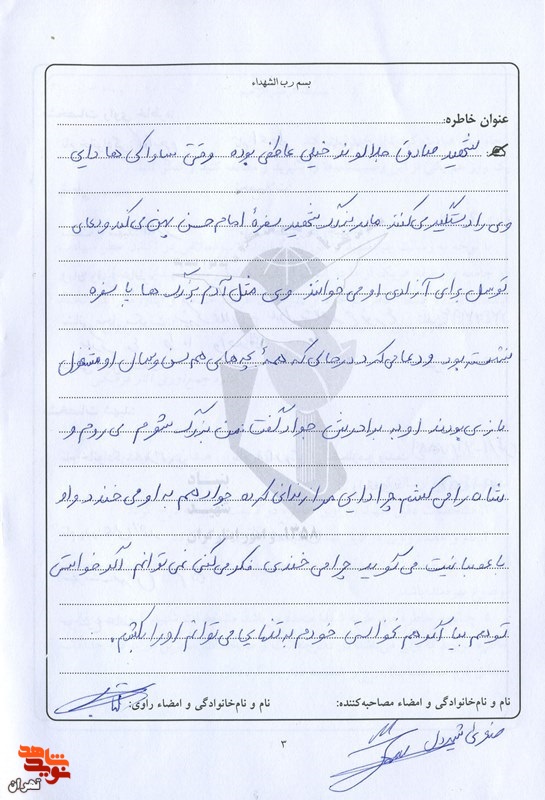 بسم رب الشهداء
عنوان خاطره:
شهید صادق جلالوند خیلی عاطفی بوده وقتی ساواکی ها دایی
وی را دستگیر می کنند مادر بزرگ شهید سفرهٔ امام حسن پهن می کند و دعای
توسل برای آزادی او می خوانند وی مثل آدم بزرگ ها پا سفره
نشسته بود و دعا می کرد در حالی که همهٔ بچه های هم سن و سال او مشغول
بازی بودند او به برادرش جواد گفت من بزرگ شوم می روم و
شاه را می کشم چرا دایی مرا زندانی کرده جواد هم به او می خندد و او
با عصبانیت می گوید چرا می خندی فکر می کنی نمی توانم اگر خواستی
تو هم بیا اگر هم نخواستی خودم به تنهایی می توانم او را بکشم.
نام و نام‌خانوادگی و امضاء مصاحبه‌کننده: نام و نام‌خانوادگی و امضاء راوی:
۳
بنیاد شهید
۱۳۵۸
نوید شاهد
تهران